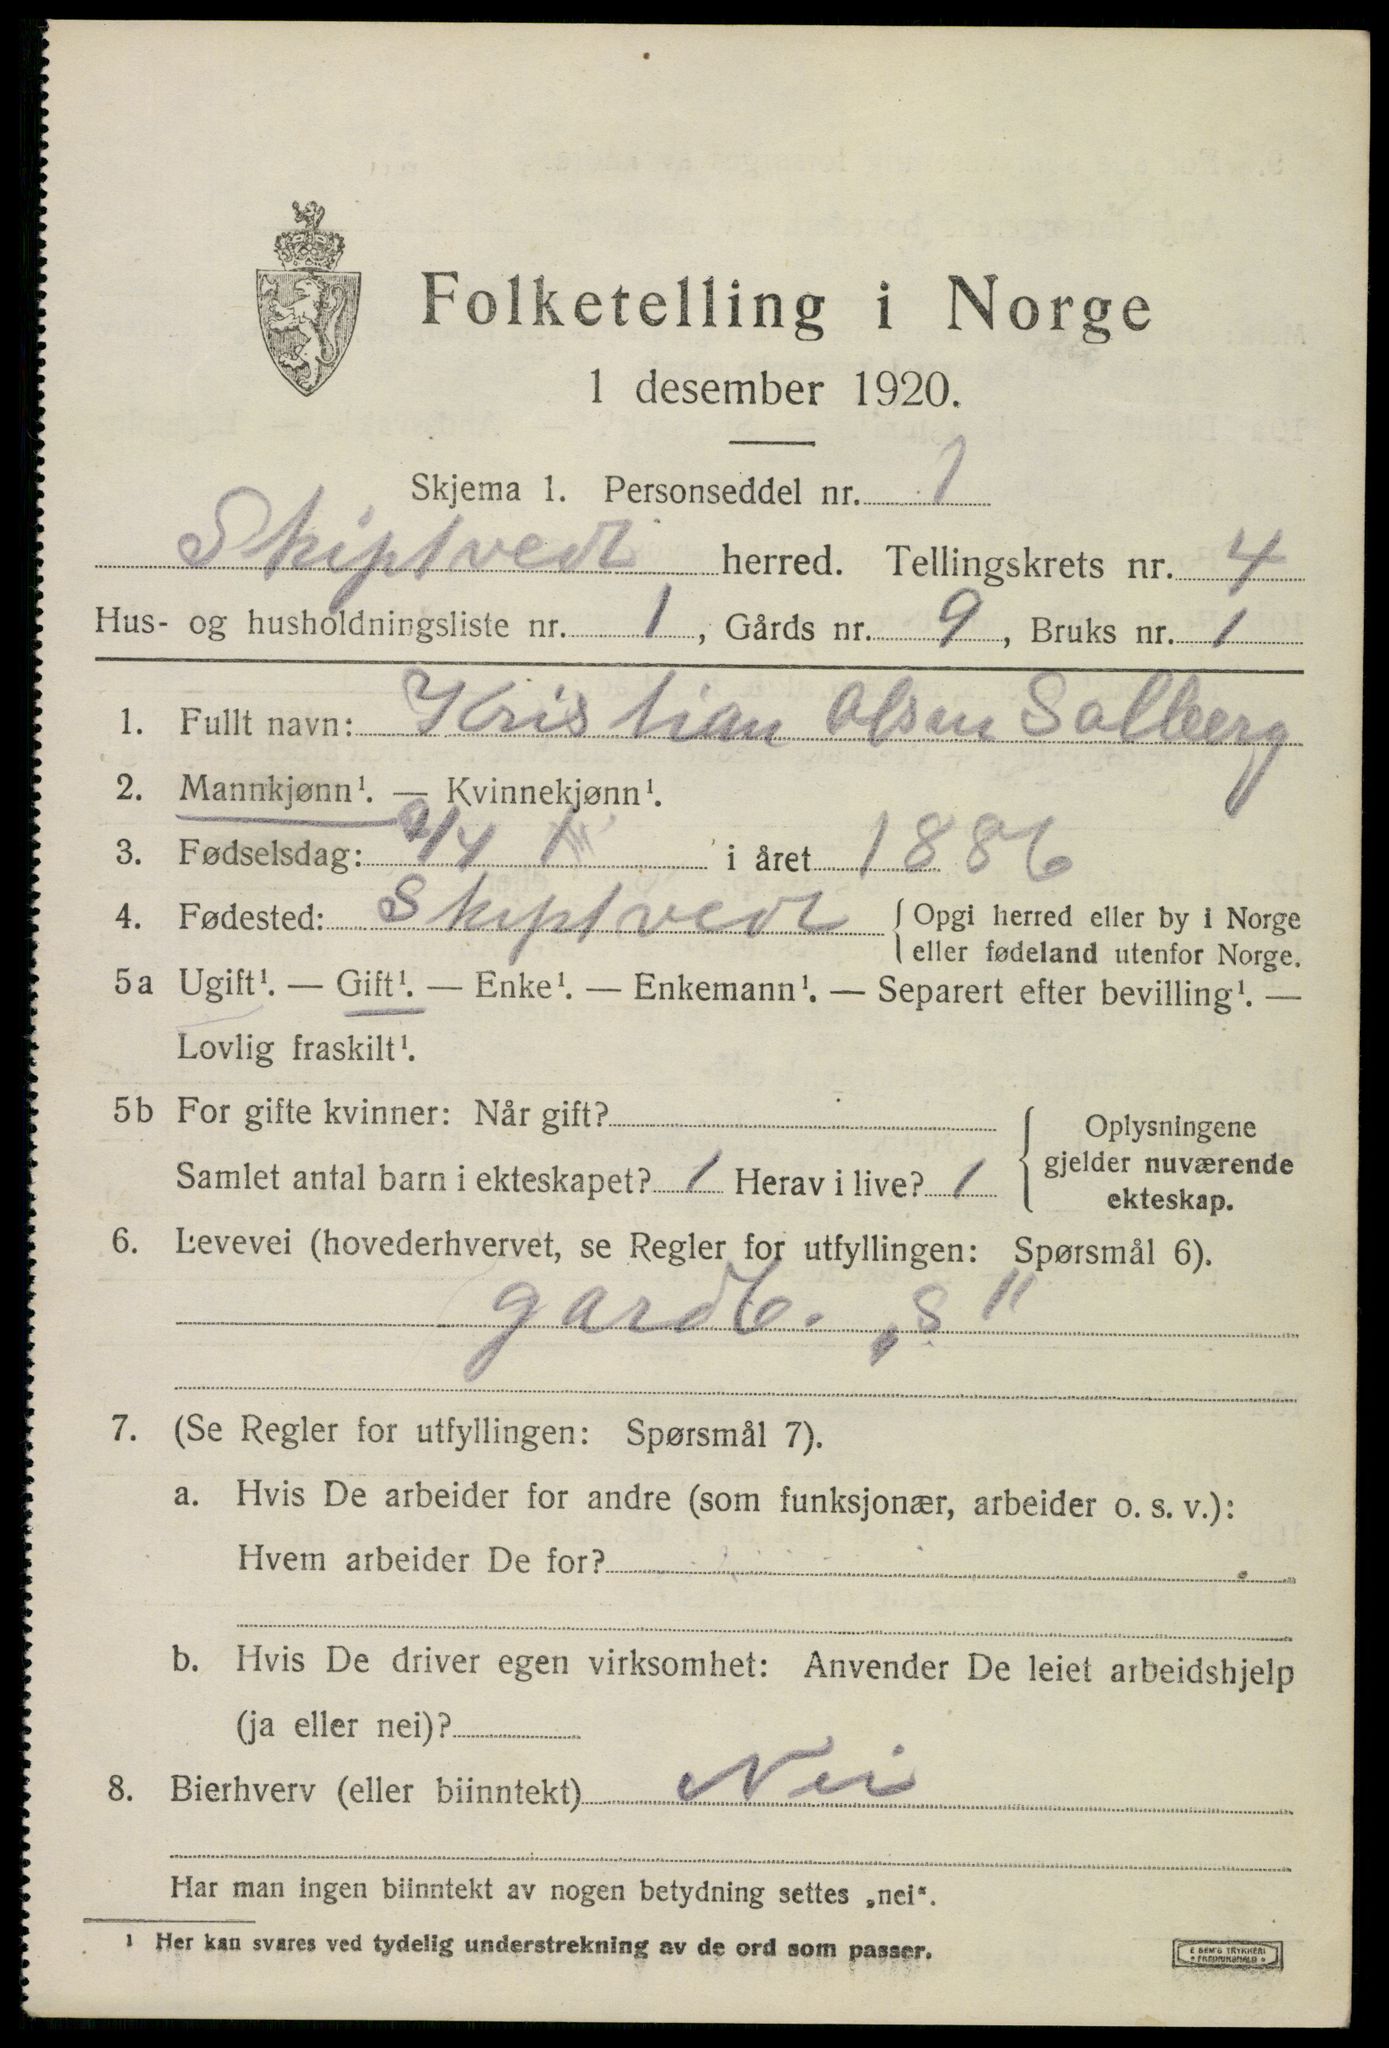 Folketelling i Norge
1 desember 1920.
Skjema 1. Personseddel nr. 1
Skiptvedt herred. Tellingskrets nr. 4
Hus- og husholdningsliste nr. 1, Gårds nr. 9, Bruks nr. 1
1. Fullt navn: Kristian Olsen Solberg
2. Mannkjønn¹. — Kvinnekjønn¹.
3. Fødselsdag: 1 i året 1886
4. Fødested: Skiptvedt { Opgi herred eller by i Norge
eller fødeland utenfor Norge.
5a Ugift¹. — Gift¹. — Enke¹. — Enkemann¹. — Separert efter bevilling¹. —
Lovlig fraskilt¹.
5b For gifte kvinner: Når gift?
Samlet antal barn i ekteskapet? 1 Herav i live? 1
Oplysningene
gjelder nuværende
ekteskap.
6. Levevei (hovederhvervet, se Regler for utfyllingen: Spørsmål 6).
gardb. „s"
7. (Se Regler for utfyllingen: Spørsmål 7).
a. Hvis De arbeider for andre (som funksjonær, arbeider o. s. v.):
Hvem arbeider De for?
b. Hvis De driver egen virksomhet: Anvender De leiet arbeidshjelp
(ja eller nei)?
8. Bierhverv (eller biinntekt) Nei
Har man ingen biinntekt av nogen betydning settes „nei".
¹ Her kan svares ved tydelig understrekning av de ord som passer.
E SEM'S TRYKKERI
* FREDRIKSHALD *